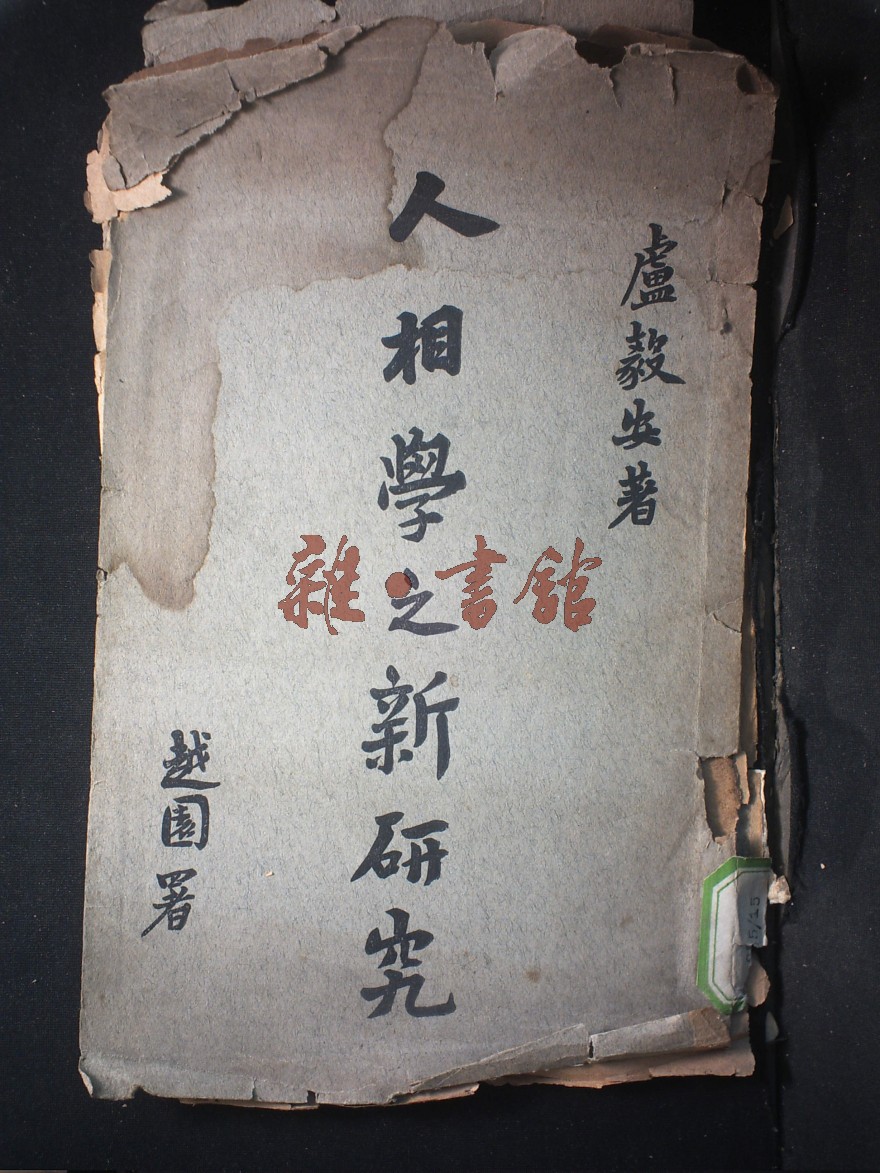 盧毅安著
人相學之新研究
越園署
雜·書館
5/15